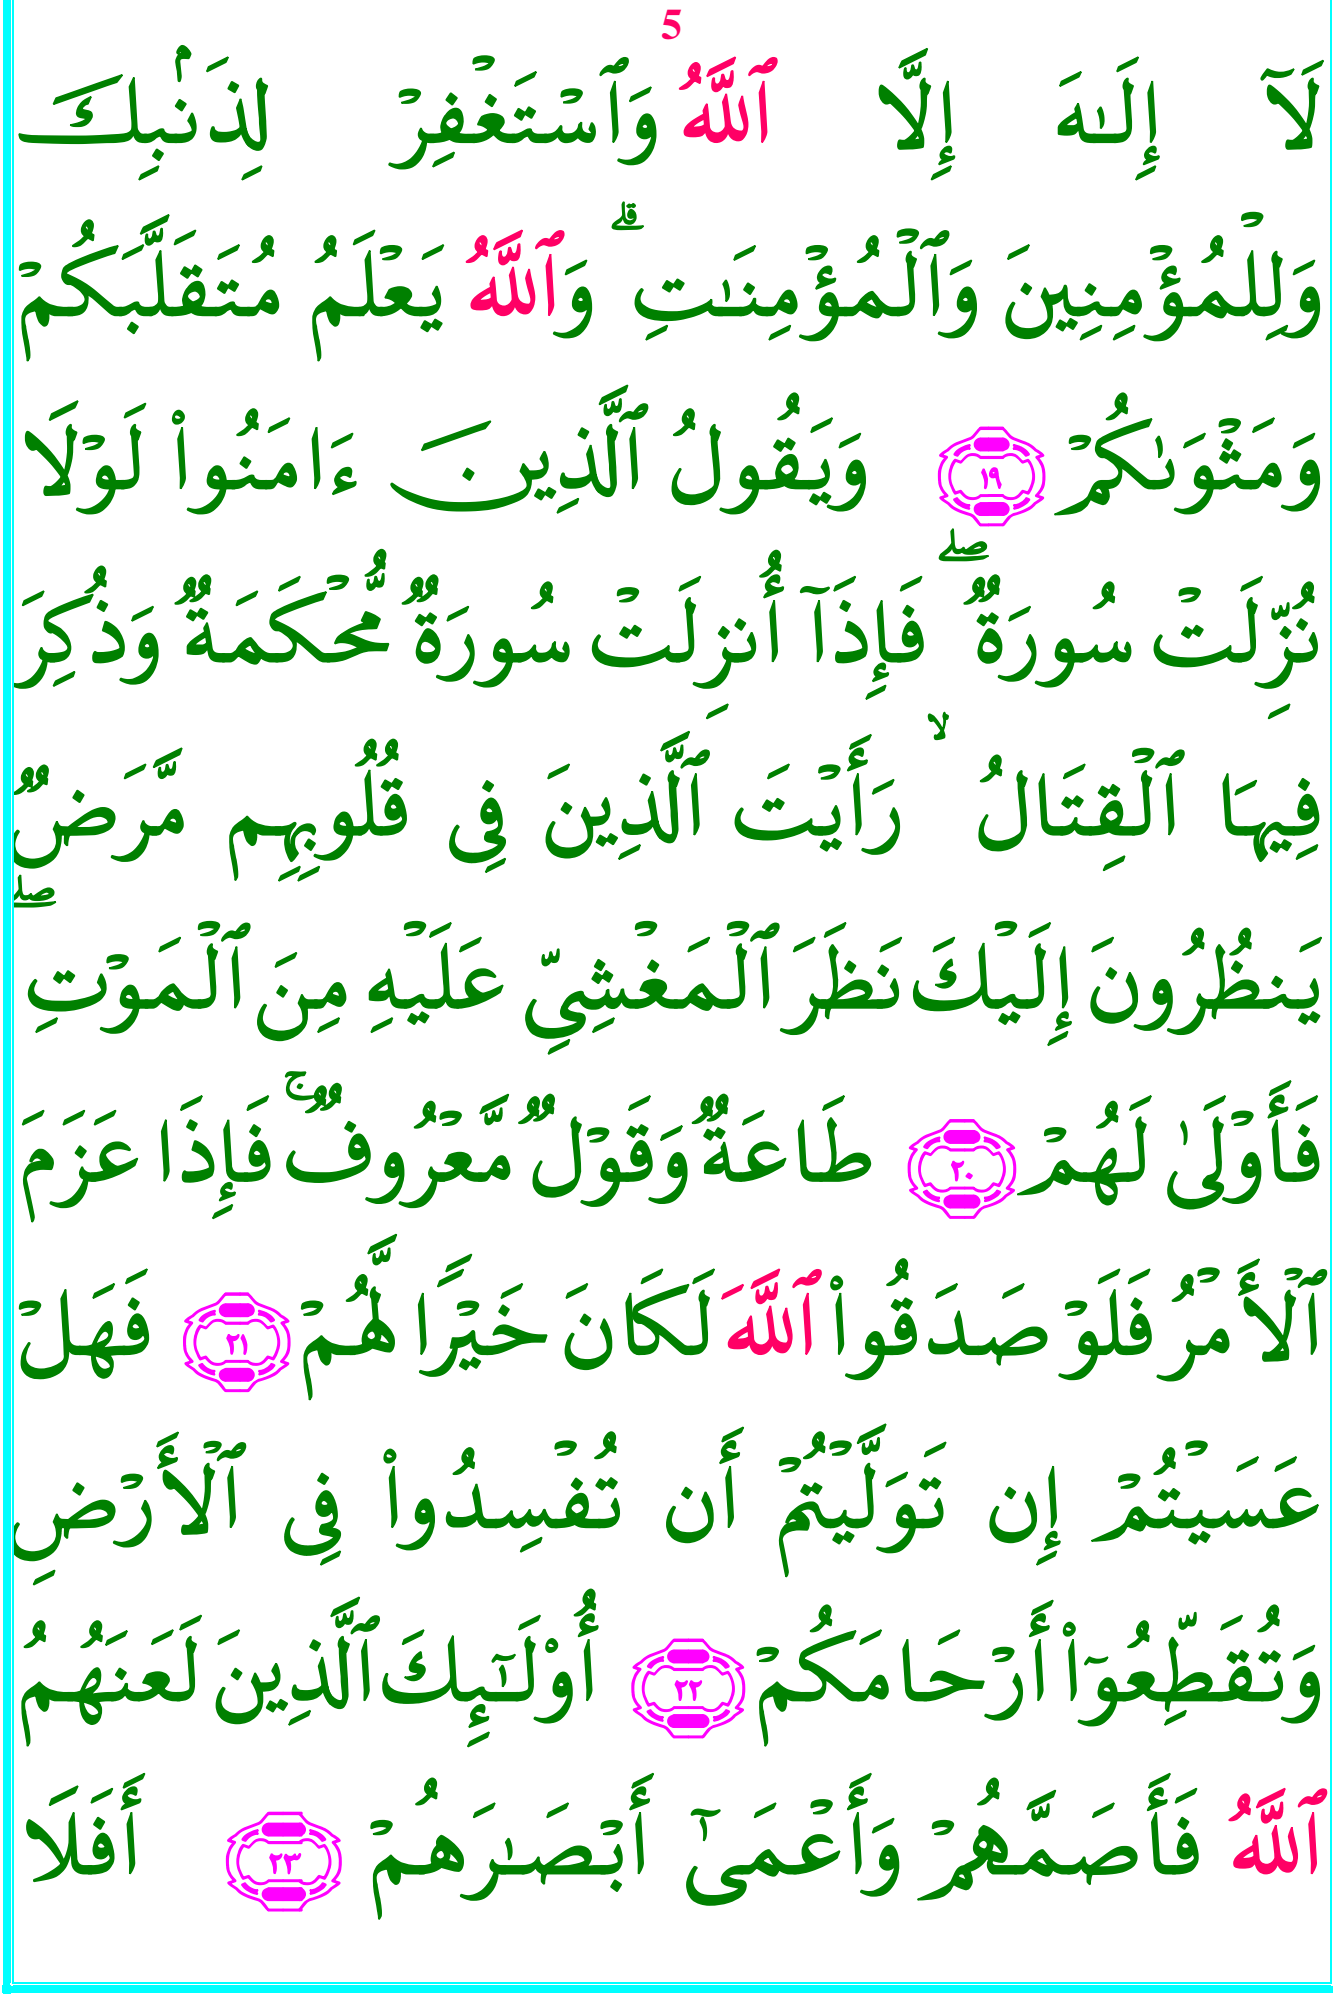 5
لَآ إِلَٰهَ إِلَّا ٱللَّهُ وَٱسْتَغْفِرْ لِذَنۢبِكَ
وَلِلْمُؤْمِنِينَ وَٱلْمُؤْمِنَٰتِ ۗ وَٱللَّهُ يَعْلَمُ مُتَقَلَّبَكُمْ
وَمَثْوَىٰكُمْ ١٩ وَيَقُولُ ٱلَّذِينَ ءَامَنُوا۟ لَوْلَا
نُزِّلَتْ سُورَةٌ ۖ فَإِذَآ أُنزِلَتْ سُورَةٌ مُّحْكَمَةٌ وَذُكِرَ
فِيهَا ٱلْقِتَالُ ۙ رَأَيْتَ ٱلَّذِينَ فِى قُلُوبِهِم مَّرَضٌ
يَنظُرُونَ إِلَيْكَ نَظَرَ ٱلْمَغْشِىِّ عَلَيْهِ مِنَ ٱلْمَوْتِ ۖ
فَأَوْلَىٰ لَهُمْ ٢٠ طَاعَةٌ وَقَوْلٌ مَّعْرُوفٌ ۚ فَإِذَا عَزَمَ
ٱلْأَمْرُ فَلَوْ صَدَقُوا۟ ٱللَّهَ لَكَانَ خَيْرًا لَّهُمْ ٢١ فَهَلْ
عَسَيْتُمْ إِن تَوَلَّيْتُمْ أَن تُفْسِدُوا۟ فِى ٱلْأَرْضِ
وَتُقَطِّعُوٓا۟ أَرْحَامَكُمْ ٢٢ أُو۟لَٰٓئِكَ ٱلَّذِينَ لَعَنَهُمُ
ٱللَّهُ فَأَصَمَّهُمْ وَأَعْمَىٰٓ أَبْصَٰرَهُمْ ٢٣ أَفَلَا